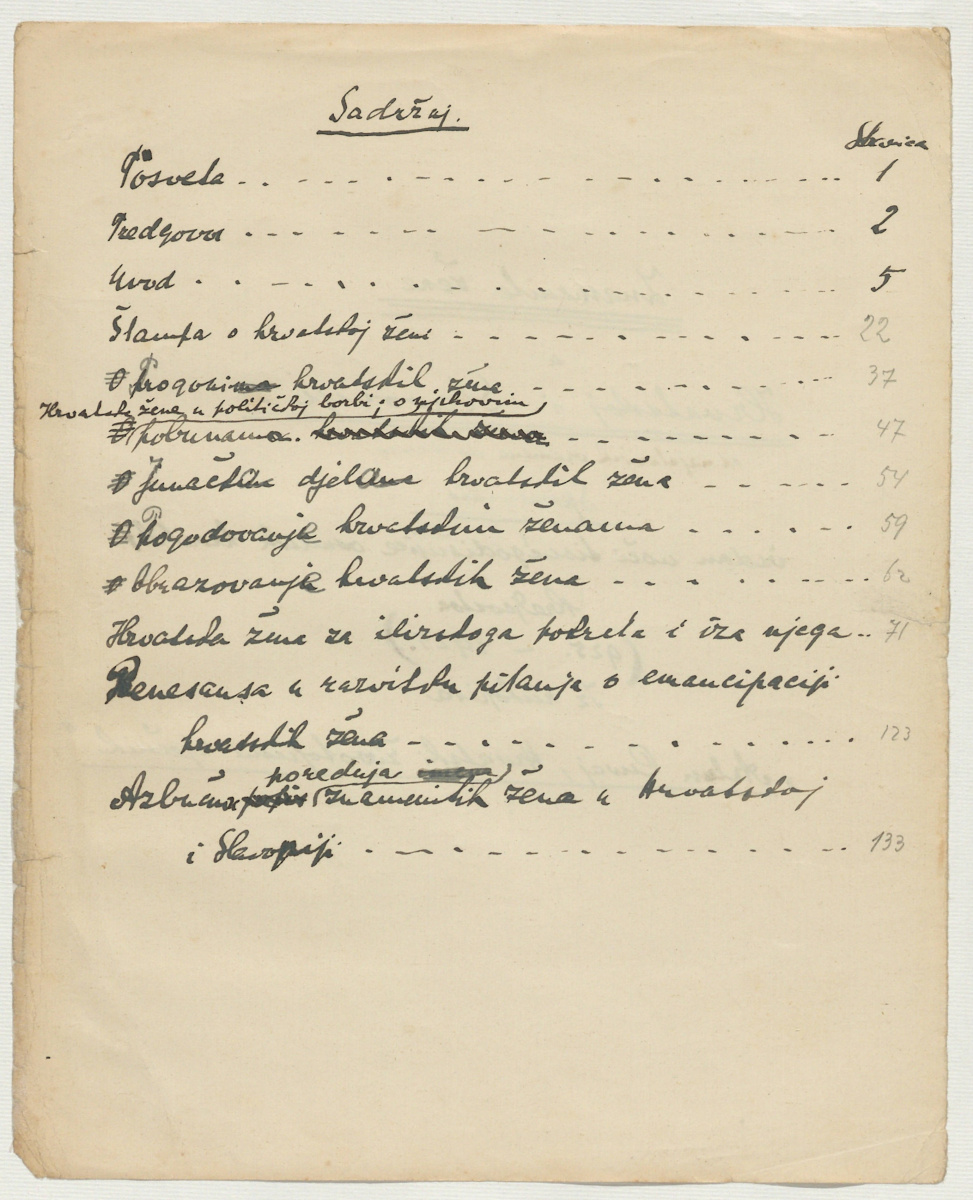 Sadržaj.
Stranica
Posveta - . . - - . - - . - - . - - - - - . . 1
Predgovor - - . . - - - - - . - - - . - 2
Uvod . . - . . . - - . - - - - . - 5
Štampa o hrvatskoj ženi - . - - - . - - - - 22
Progoni hrvatskih žena - . - - - . - - - - 37
Hrvatske žene u političkoj borbi; o njihovim
pobunama. - . - - - - . - - 47
Junačka djela hrvatskih žena - - - - - 54
Pogodovanje hrvatskim ženama . . . . - . 59
Obrazovanje hrvatskih žena . . . . . - . . . 62
Hrvatska žena za ilirskoga pokreta i iza njega . . 71
Renesansa u razvitku pitanja o emancipaciji
hrvatskih žena - - . - . . - . . - . - . . . 123
poredaja
Azbučna znamenitih žena u Hrvatskoj
i Slavoniji . - - . - - . - - - . - - - . . 133